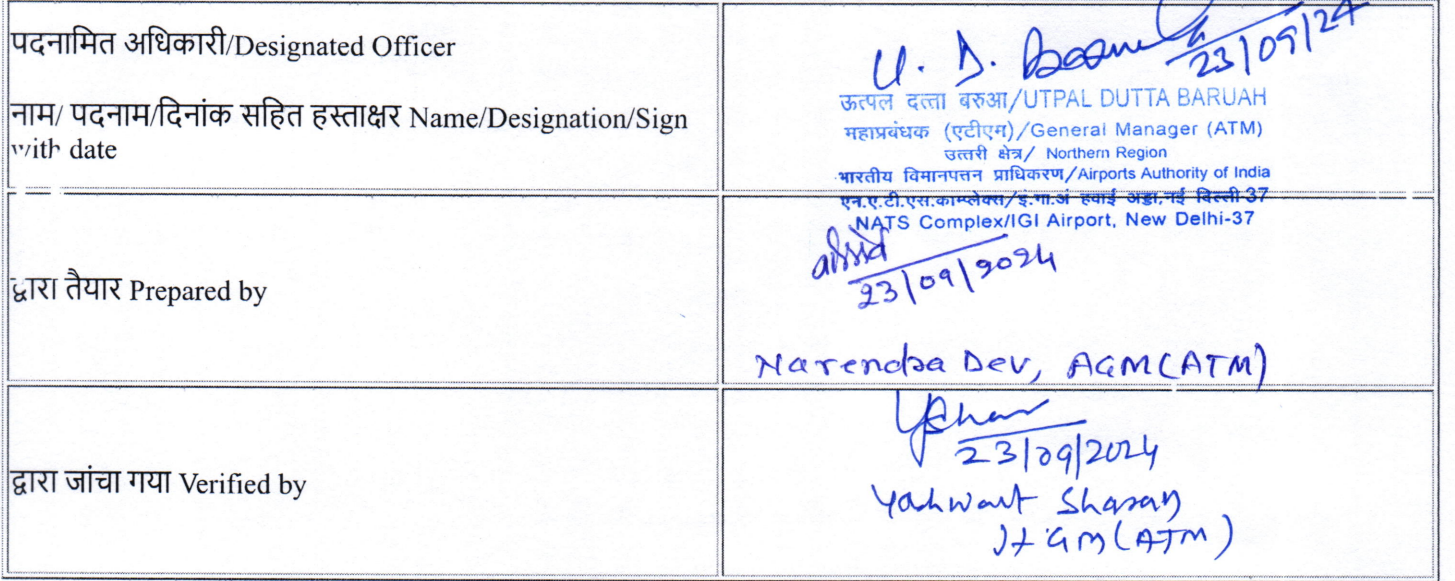 पदनामित अधिकारी/Designated Officer
नाम/ पदनाम/दिनांक सहित हस्ताक्षर Name/Designation/Sign
with date
U. D. 
23/09/24
ऊत्पल दत्ता बरुआ/UTPAL DUTTA BARUAH
महाप्रबंधक (एटीएम)/General Manager (ATM)
उत्तरी क्षेत्र/ Northern Region
भारतीय विमानपत्तन प्राधिकरण/Airports Authority of India
एन.ए.टी.एस.काम्प्लेक्स/इं.गा.अं हवाई अड्डा,नई दिल्ली-37
NATS Complex/IGI Airport, New Delhi-37
द्वारा तैयार Prepared by
23/09/2024
Narendra Dev, AGM(ATM)
द्वारा जांचा गया Verified by
23/09/2024
Yashwant Sharan
Jt GM(ATM)